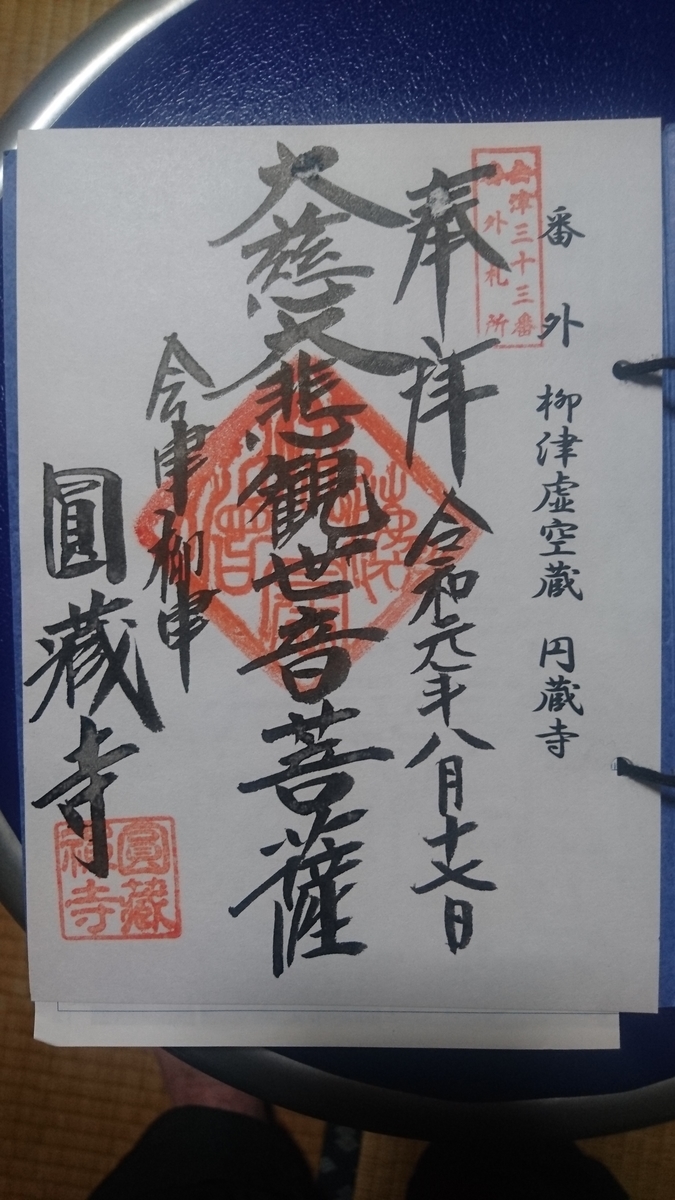 番外 柳津虚空蔵 円蔵寺
会津三十三番
番外札所
奉拝 令和元年八月十七日
大慈大悲観世音菩薩
会津柳津
圓蔵寺
圓蔵
禅寺